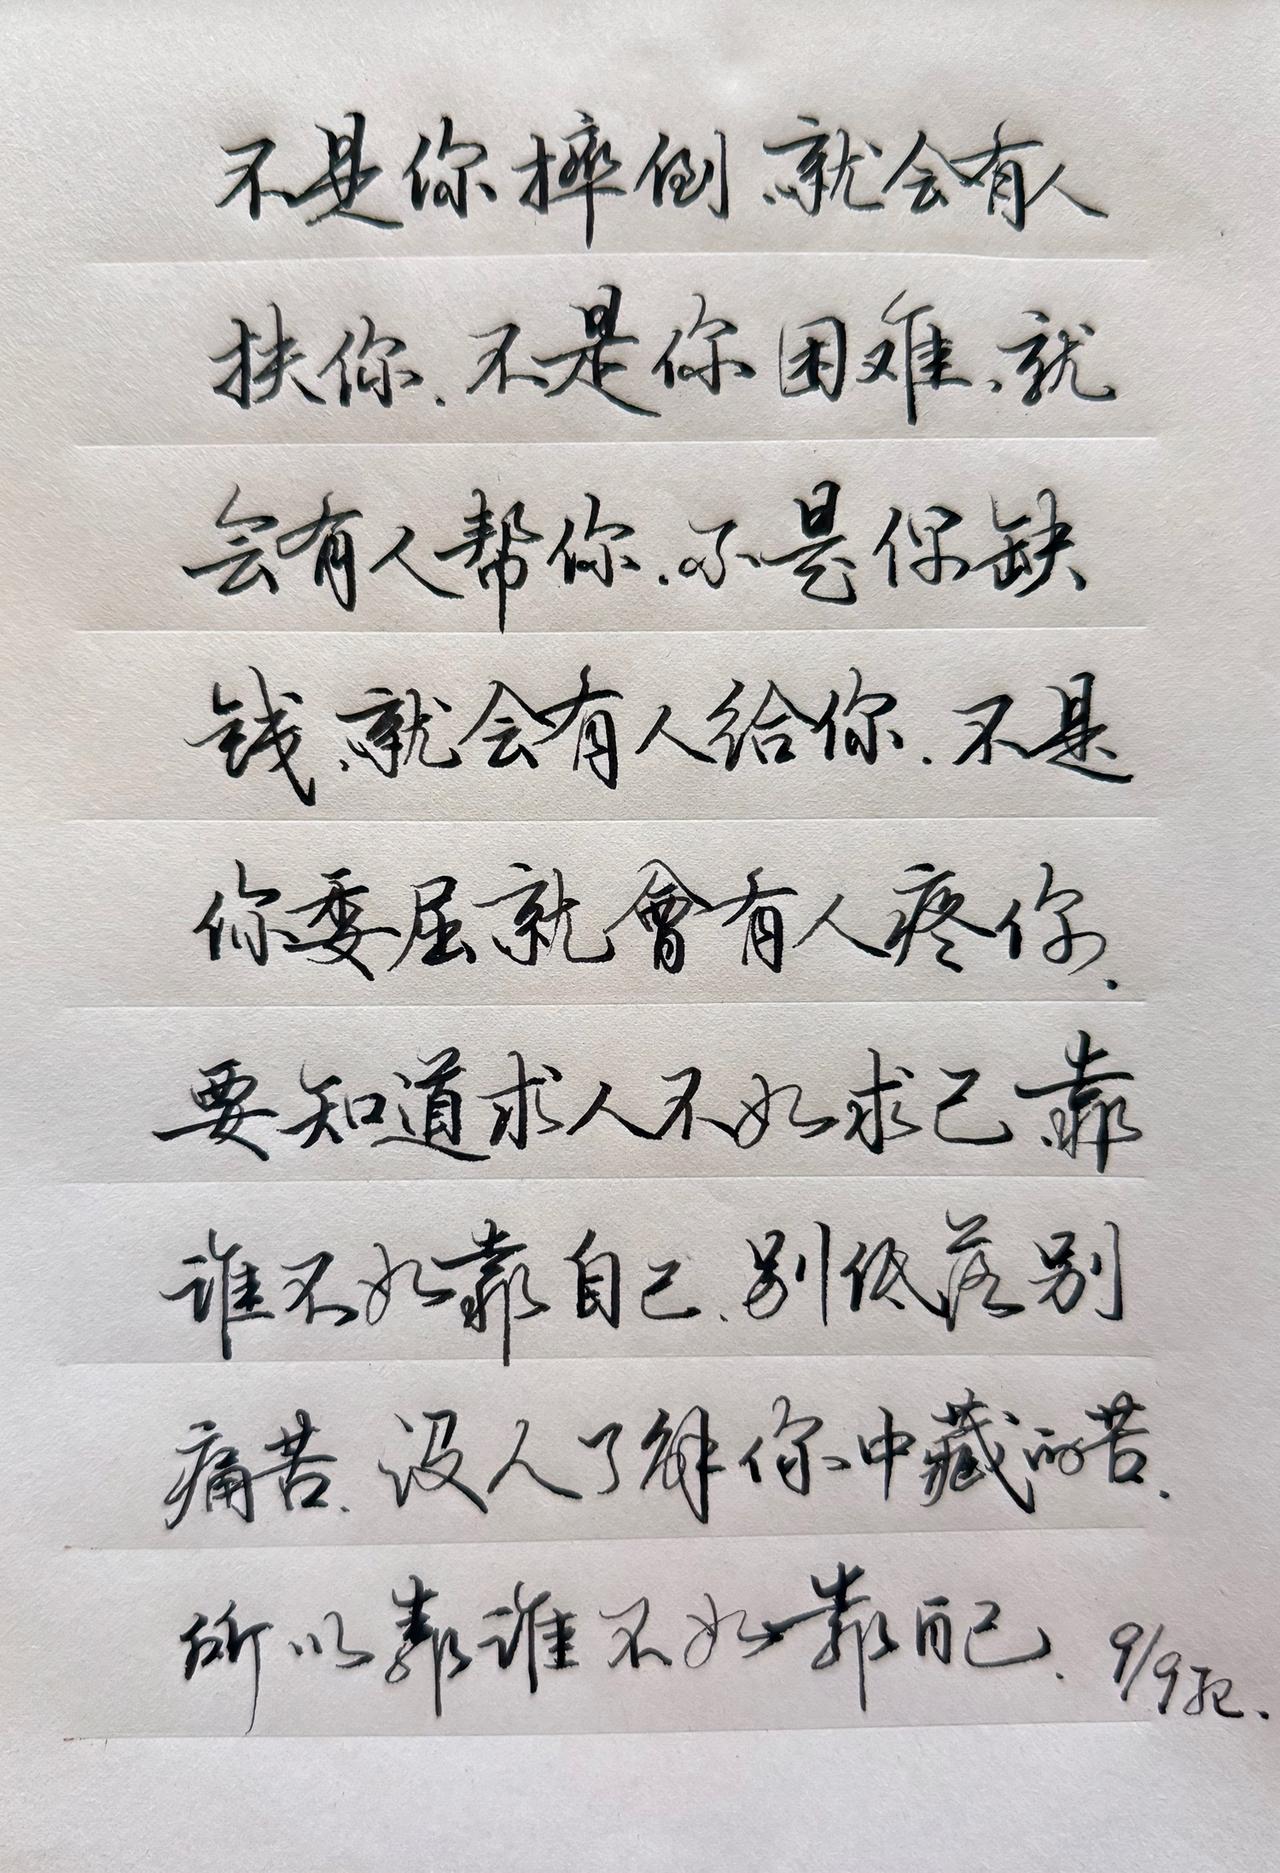 不是你摔倒、就会有人
扶你.不是你困难、就
会有人帮你.不是你缺
钱、就会有人给你.不是
你委屈就會有人疼你.
要知道求人不如求己、靠
谁不如靠自己、别低落别
痛苦、没人了解你中藏的苦.
所以靠谁不如靠自己. 9/9